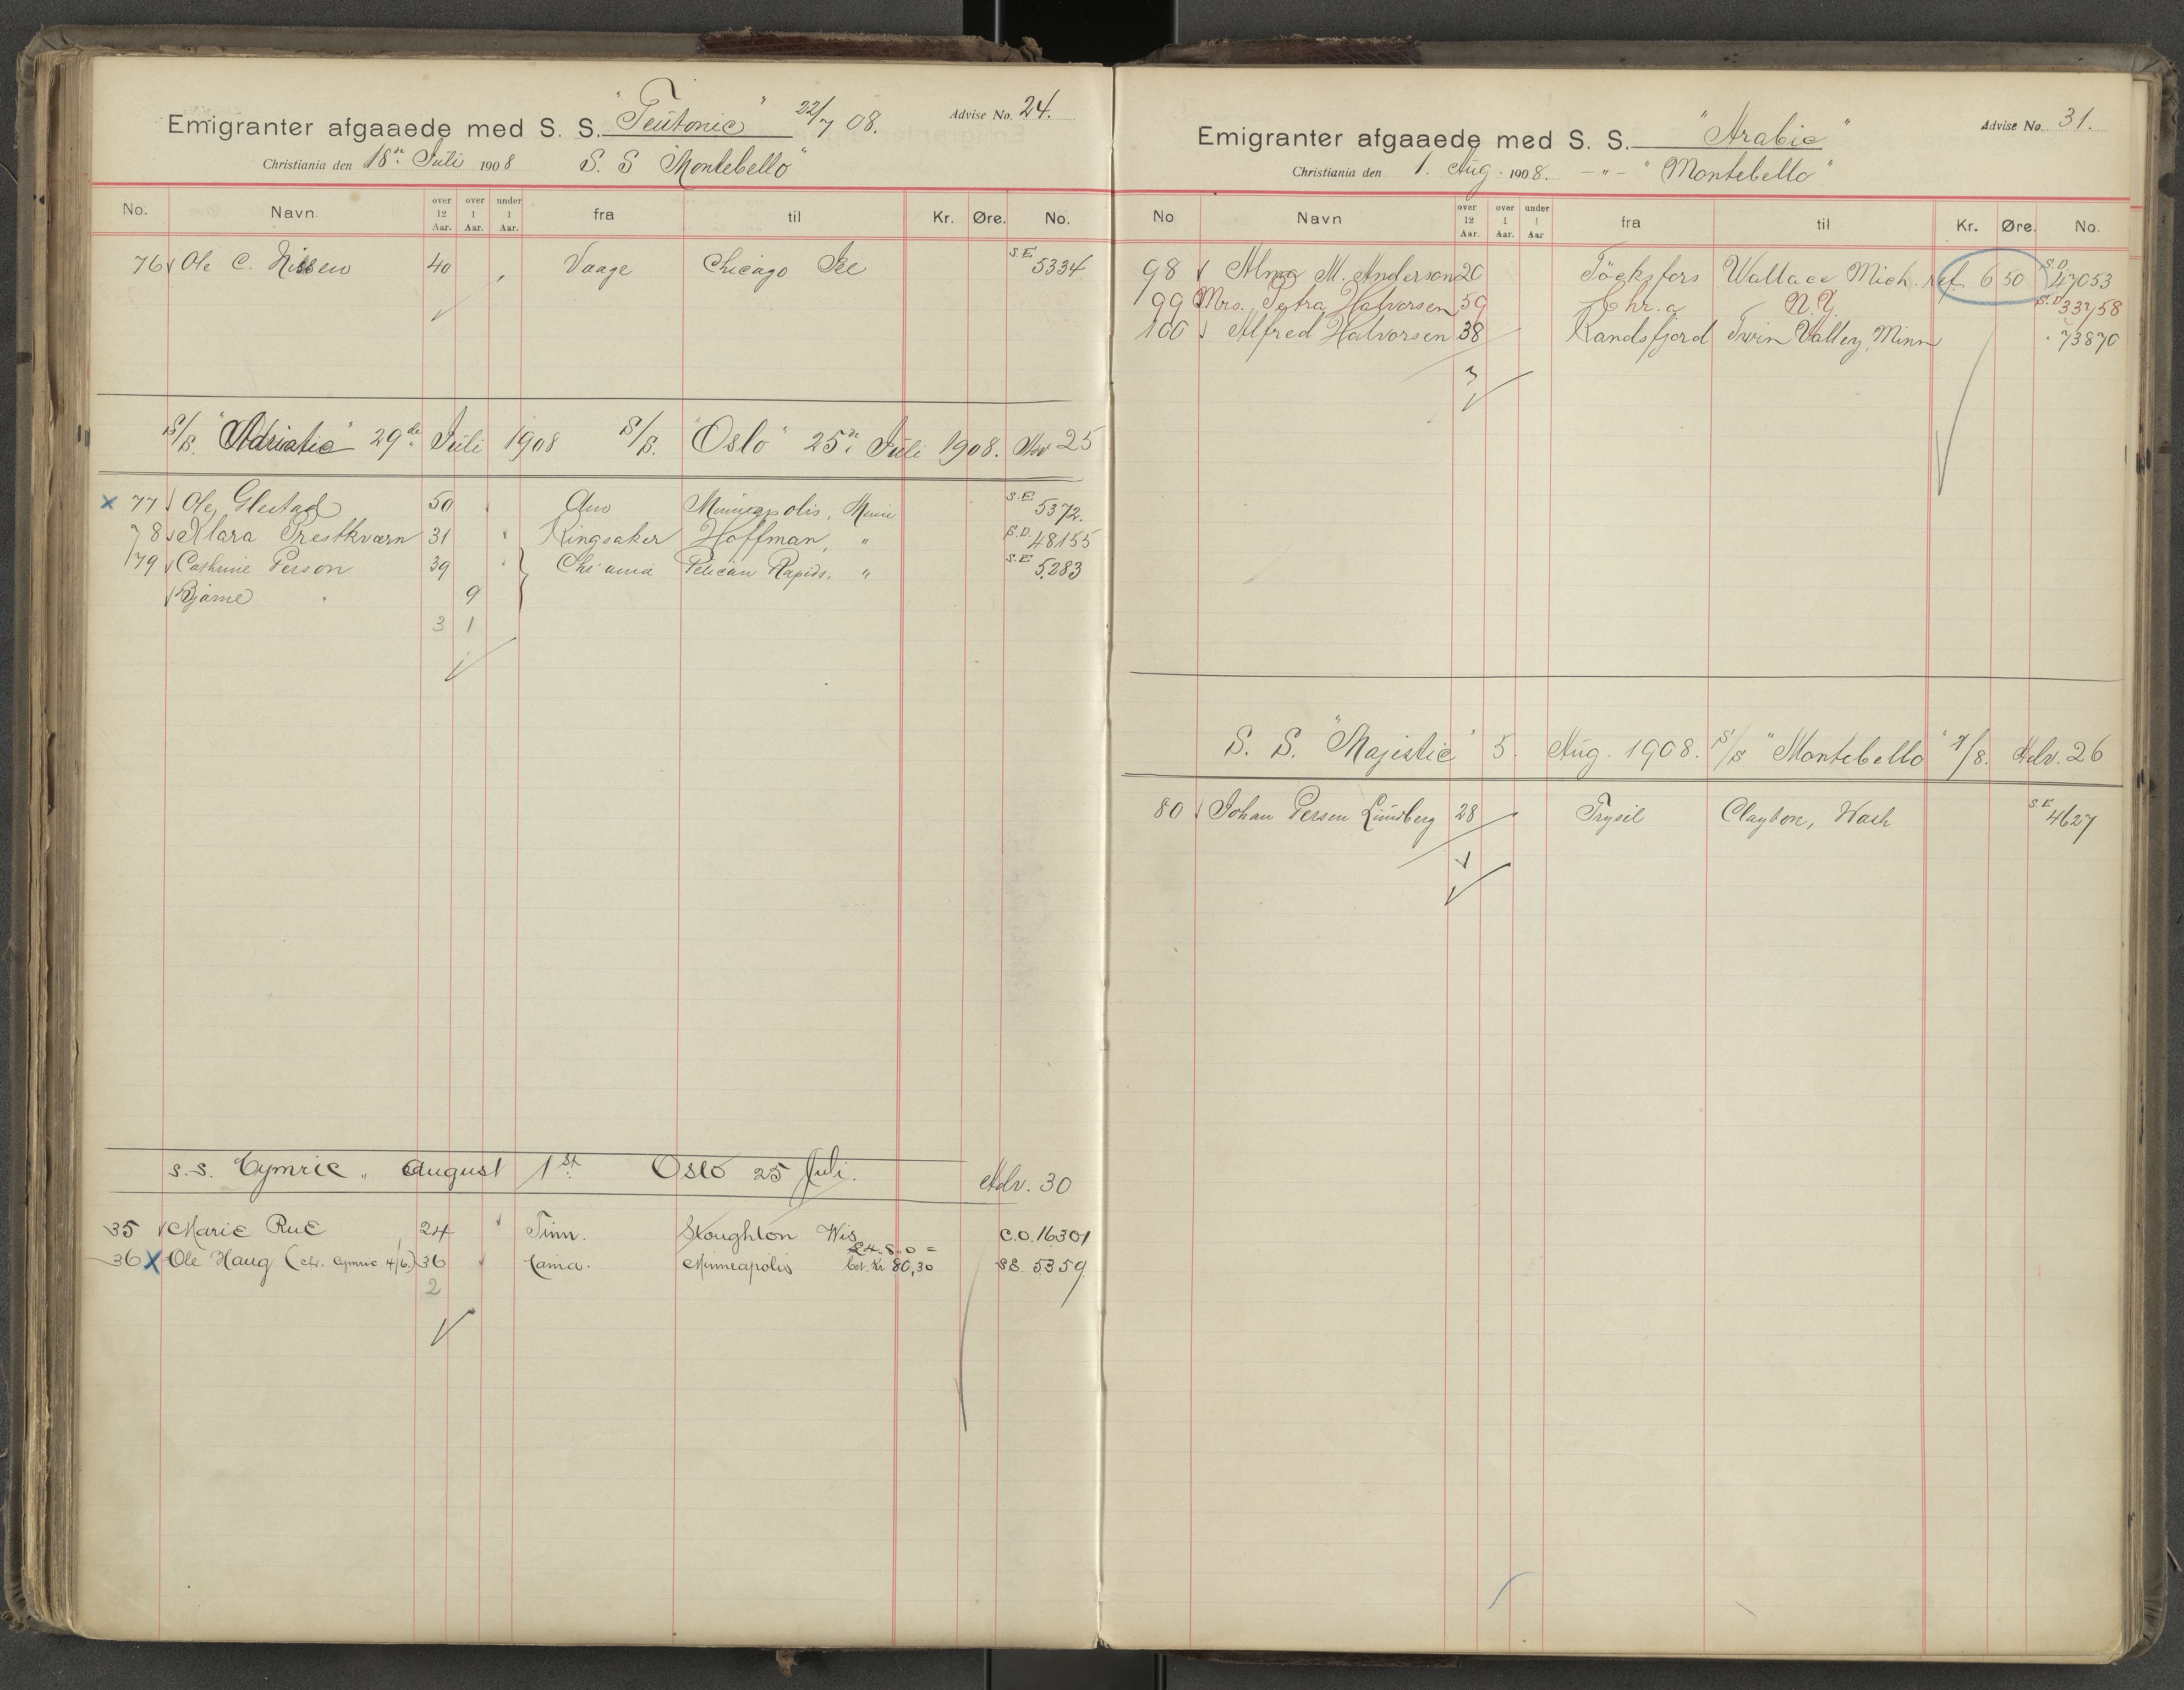 Emigranter afgaaede med S. S. "Teutonic" 22/7 08. Advise No. 24.
Christiania den 18de Juli 1908 S. S "Montebello"
No. Navn over 12 Aar. over 1 Aar. under 1 Aar. fra til Kr. Øre. No.
76 Ole C. Nissen 40 Vaage Chicago Ill S.E. 5334
S/S. "Adriatic" 29de Juli 1908 S/S. "Oslo" 25de Juli 1908. Adv 25
77 Ole Glestad 50 Minneapolis, Minn S.E. 5372.
78 Klara Prestkværn 31 Ringsaker Hoffman, " S.D. 48155
79 Cathrine Person 39 Chr'ania Pelican Rapids, " S.E. 5283
Bjarne " 9
3 1
S.S. Cymric " August 1st. Oslo 25 Juli. Adv. 30
35 Marie Rue 24 Tinn. Stoughton Wis C.O. 16301
£4.8.0 =
36 Ole Haug (cfr. Cymric 4/6.) 36 Minneapolis bet. Kr 80,30 SE. 5359
2
Emigranter afgaaede med S. S. "Arabic" Advise No. 31.
Christiania den 1. Aug. 1908. -"- "Montebello"
No Navn over 12 Aar. over 1 Aar. under 1 Aar fra til Kr. Øre. No.
98 Alma M. Anderson 20 Töcksfors Wallace Mich. ref. 6 50 S.D. 47053
99 Mrs. Petra Halvorsen 59 Chr.a N.Y. S.D. 33758
100 Alfred Halvorsen 38 Randsfjord Twin Valley, Minn " 73870
3
S. S. "Majestic" 5. Aug. 1908. S/S "Montebello" 1/8. Adv. 26
80 Johan Persen Lundberg 28 Trysil Clayton, Wash S.E. 4627
1